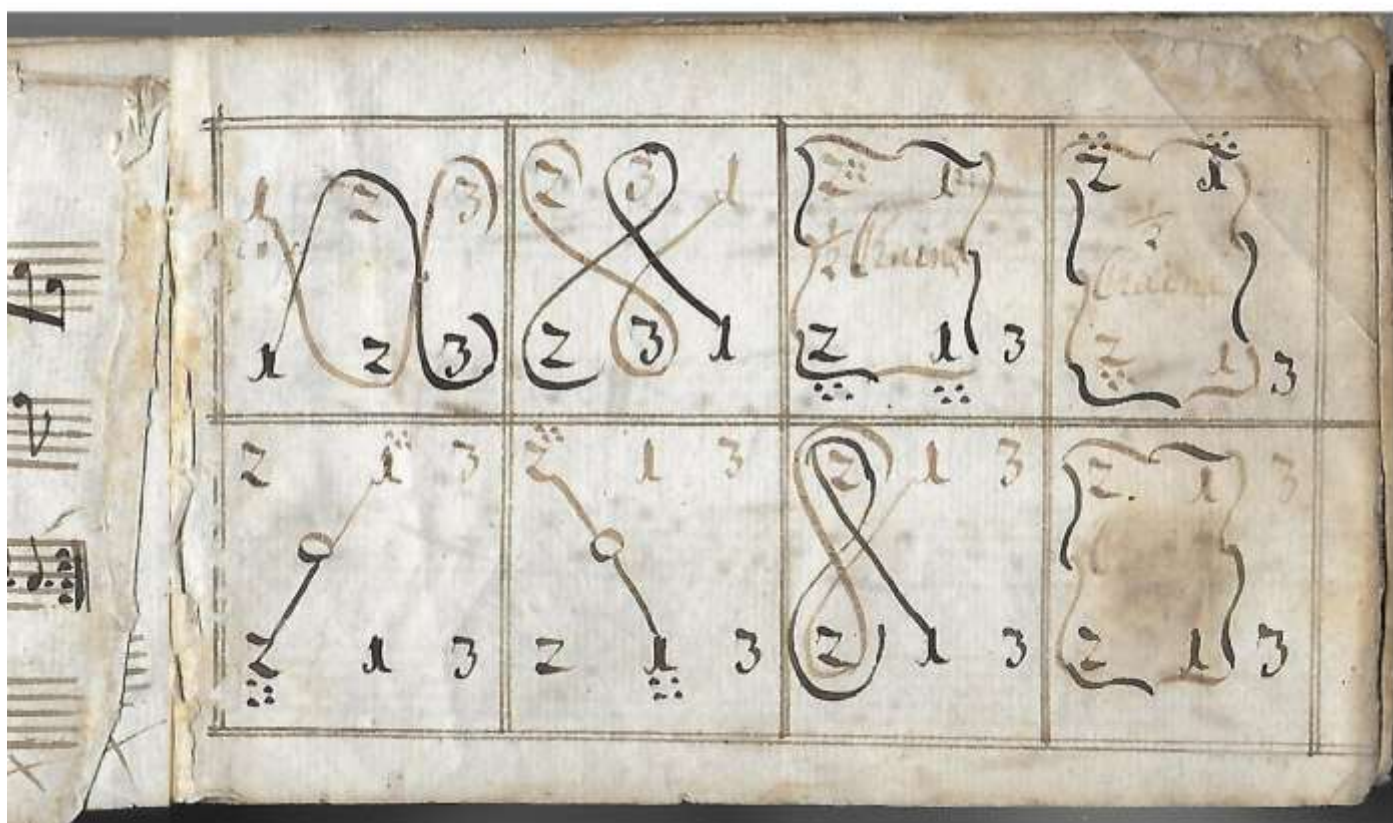 1 2 3
1 2 3
2 3 1
2 3 1
2 1
½ Chaine
2 1 3
2 1
½
Chaine
2 1 3
2 1 3
2 1 3
2 1 3
2 1 3
2 1 3
2 1 3
2 1 3
2 1 3